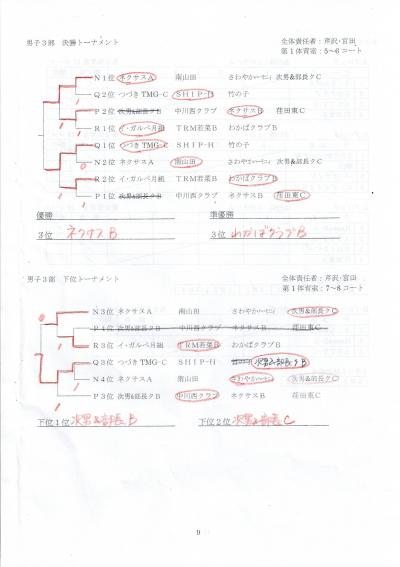 男子3部 決勝トーナメント 全体責任者:芹沢・官田
第1体育室:5~6コート
N1位 ネクサスA 南山田 さわやかハーモニィ 次男&部長クC
Q2位 つづきTMG-C SHIP-H 竹の子
P2位 次男&部長クB 中川西クラブ ネクサスB 荏田東C
R1位 イ・ガルベ月組 TRM若菜B わかばクラブB
Q1位 つづきTMG-C SHIP-H 竹の子
N2位 ネクサスA 南山田 さわやかハーモニィ 次男&部長クC
R2位 イ・ガルベ月組 TRM若菜B わかばクラブB
P1位 次男&部長クB 中川西クラブ ネクサスB 荏田東C
優勝 準優勝
3位 ネクサスB 3位 わかばクラブB
男子3部 下位トーナメント 全体責任者:芹沢・官田
第1体育室:7~8コート
N3位 ネクサスA 南山田 さわやかハーモニィ 次男&部長クC
P4位 次男&部長クB 中川西クラブ ネクサスB 荏田東C
R3位 イ・ガルベ月組 TRM若菜B わかばクラブB
Q3位 つづきTMG-C SHIP-H 次男&部長クB
N4位 ネクサスA 南山田 さわやかハーモニィ 次男&部長クC
P3位 次男&部長クB 中川西クラブ ネクサスB 荏田東C
下位1位 次男&部長B 下位2位 次男&部長C
9